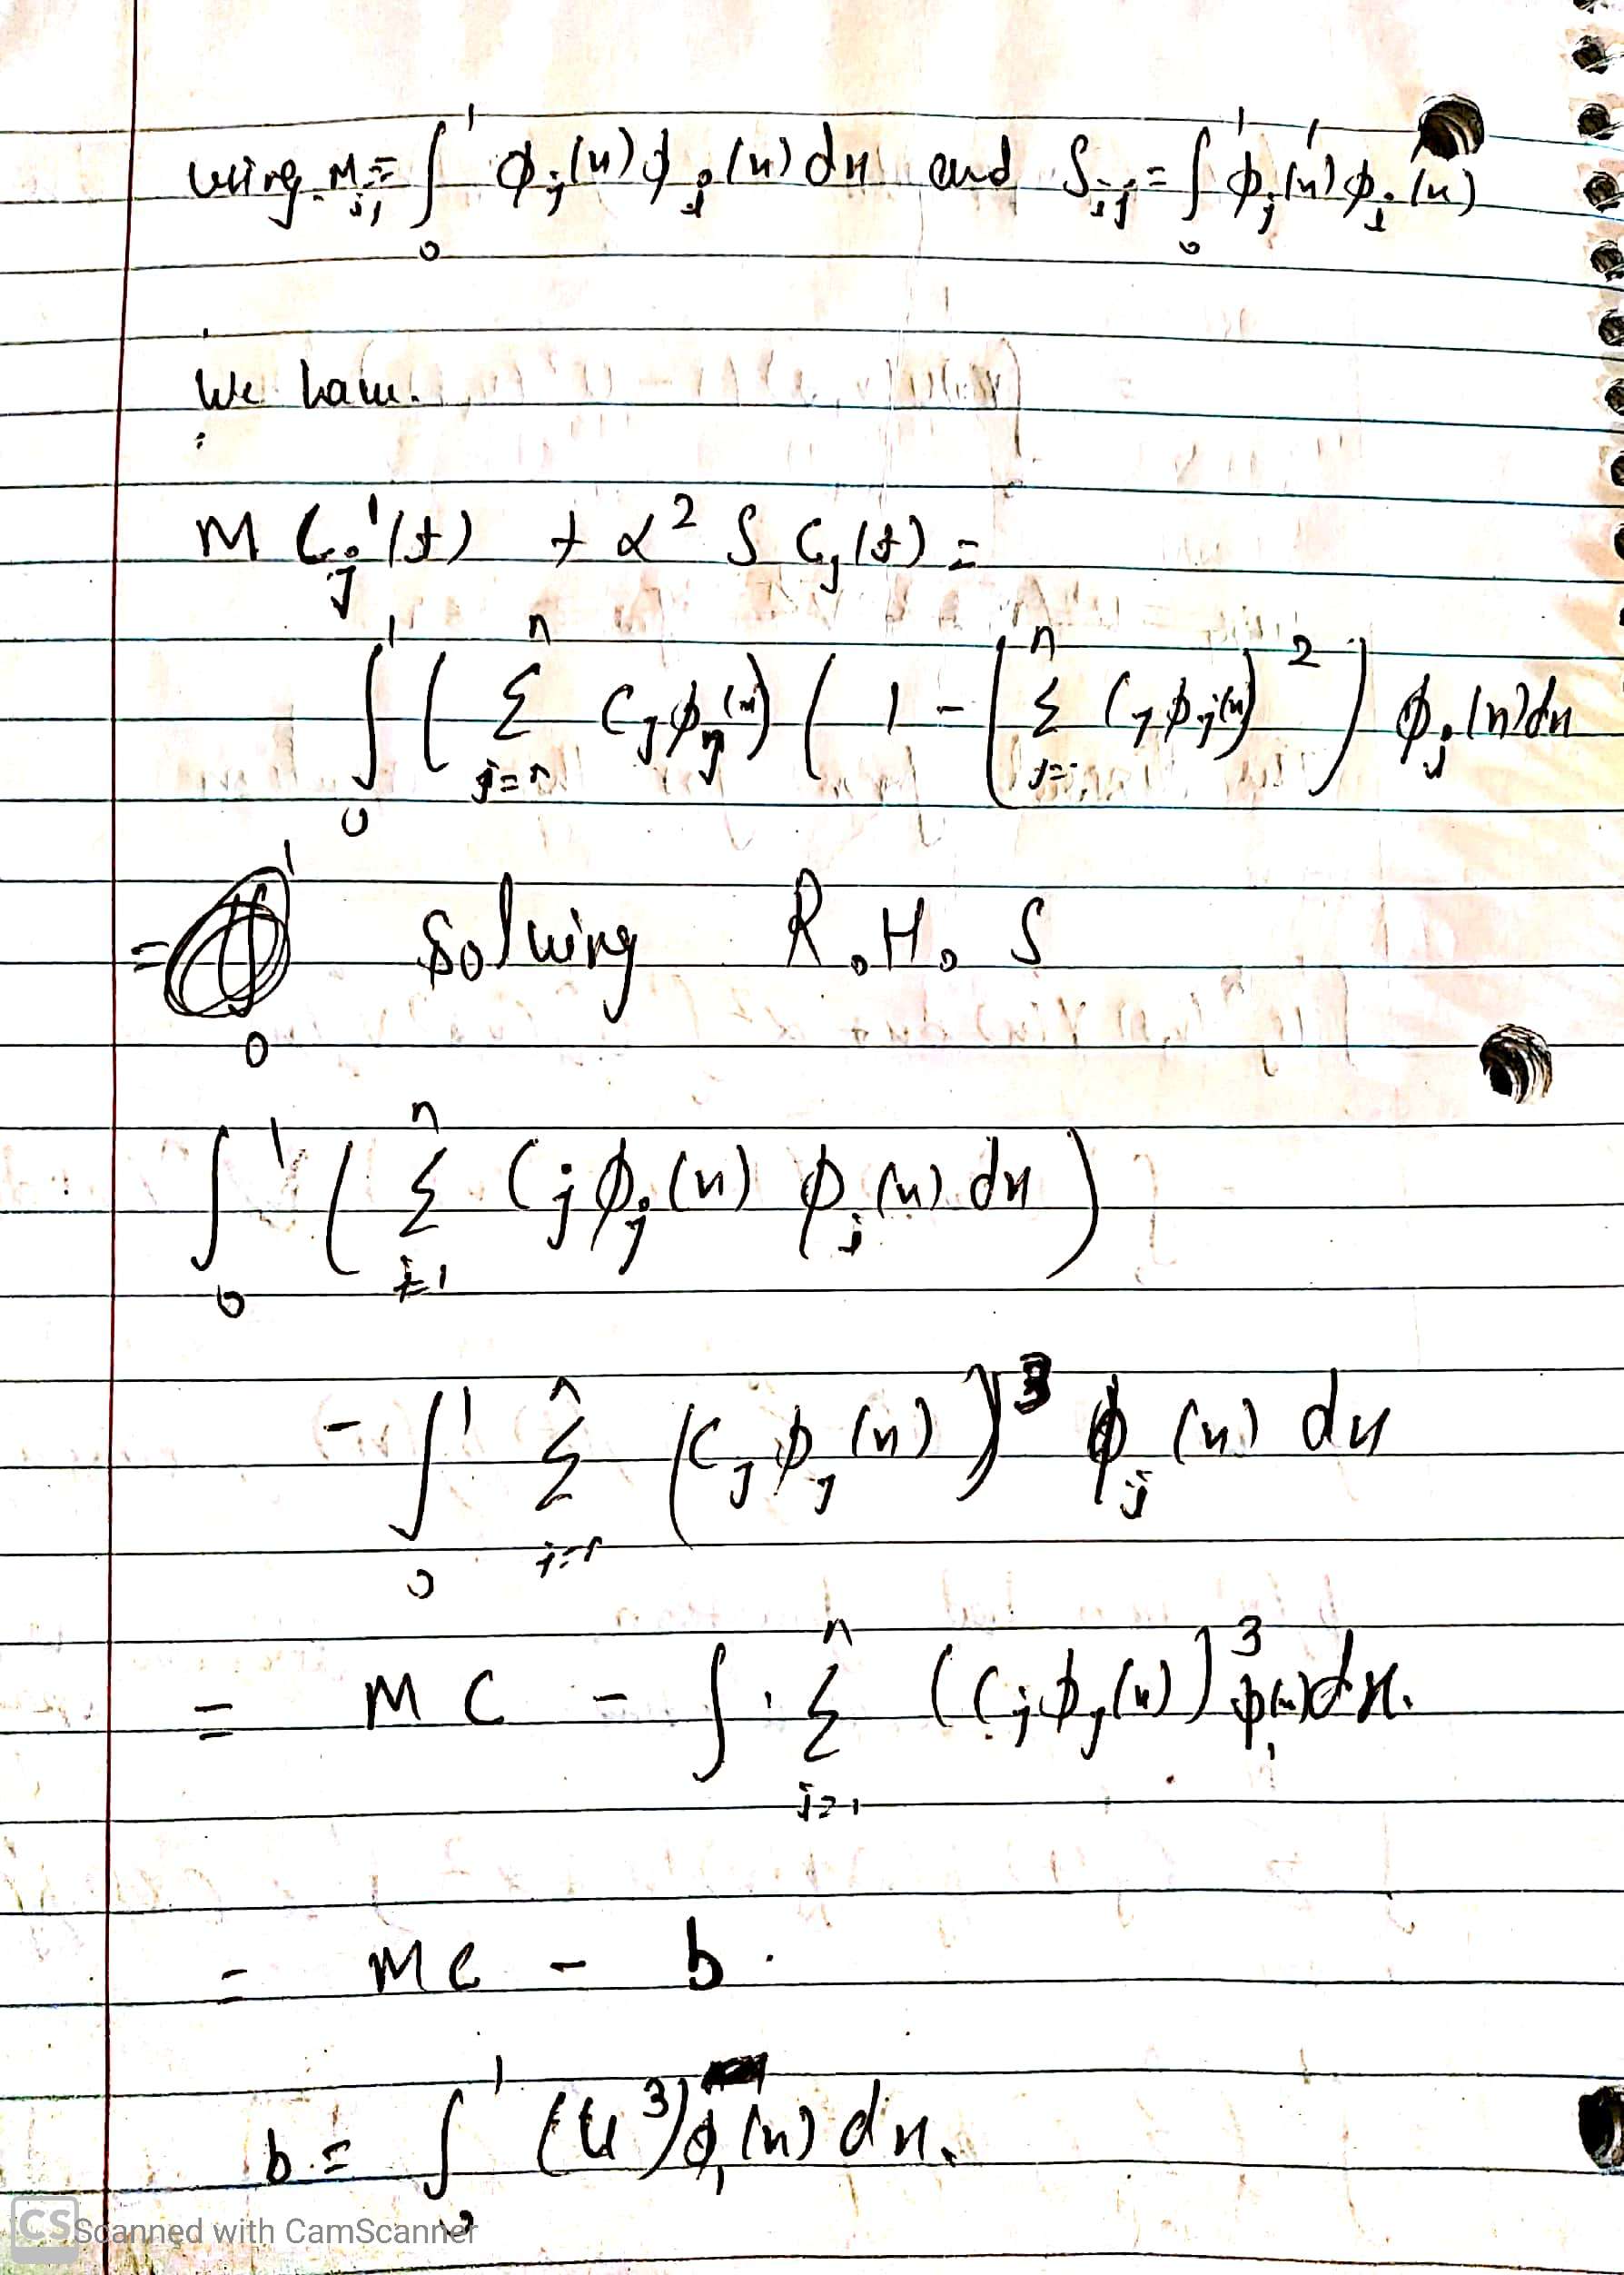 using M_{ij} = ∫_0^1 ϕ_j(x) ϕ_i(x) dx and S_{ij} = ∫_0^1 ϕ_j'(x) ϕ_i'(x)
We have.
M C_j'(t) + α² S C_j(t) =
∫_0^1 ( Σ_{j=1}^n C_j ϕ_j(x) ) ( 1 - ( Σ_{j=1}^n C_j ϕ_j(x) )² ) ϕ_i(x) dx
= Solving R.H.S
∫_0^1 ( Σ_{j=1}^n C_j ϕ_j(x) ϕ_i(x) dx )
- ∫_0^1 Σ_{j=1}^n ( C_j ϕ_j(x) )³ ϕ_i(x) dx
= M C - ∫ Σ_{j=1}^n ( C_j ϕ_j(x) )³ ϕ_i(x) dx.
= M C - b.
b = ∫_0^1 (u³) ϕ_i(x) dx.
CS Scanned with CamScanner